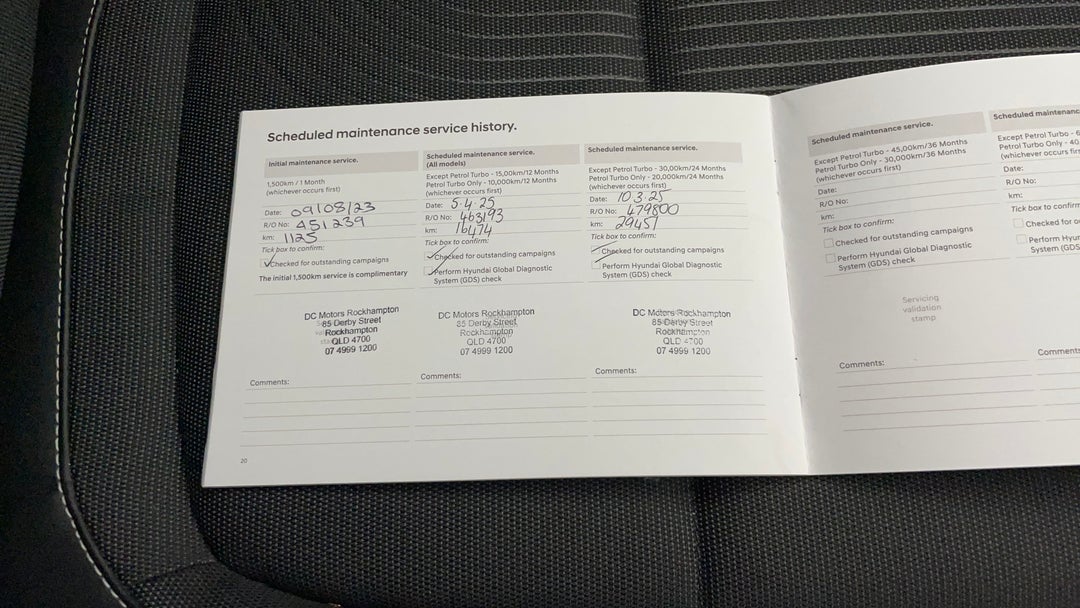 Scheduled maintenance service history.
Initial maintenance service.
1,500km / 1 Month
(whichever occurs first)
Date: 09/08/23
R/O No: 451239
km: 1125
Tick box to confirm:
Checked for outstanding campaigns
The initial 1,500km service is complimentary
DC Motors Rockhampton
85 Derby Street
Rockhampton
QLD 4700
07 4999 1200
Comments:
Scheduled maintenance service.
(All models)
Except Petrol Turbo - 15,00km/12 Months
Petrol Turbo Only - 10,000km/12 Months
(whichever occurs first)
Date: 5.4.25
R/O No: 463193
km: 16474
Tick box to confirm:
Checked for outstanding campaigns
Perform Hyundai Global Diagnostic
System (GDS) check
DC Motors Rockhampton
85 Derby Street
Rockhampton
QLD 4700
07 4999 1200
Comments:
Scheduled maintenance service.
Except Petrol Turbo - 30,00km/24 Months
Petrol Turbo Only - 20,000km/24 Months
(whichever occurs first)
Date: 10.3.25
R/O No: 479800
km: 29451
Tick box to confirm:
Checked for outstanding campaigns
Perform Hyundai Global Diagnostic
System (GDS) check
DC Motors Rockhampton
85 Derby Street
Rockhampton
QLD 4700
07 4999 1200
Comments:
20
Scheduled maintenance service.
Except Petrol Turbo - 45,00km/36 Months
Petrol Turbo Only - 30,000km/36 Months
(whichever occurs first)
Date:
R/O No:
km:
Tick box to confirm:
Checked for outstanding campaigns
Perform Hyundai Global Diagnostic
System (GDS) check
Servicing
validation
stamp
Comments:
Scheduled maintenance
Except Petrol Turbo - 6
Petrol Turbo Only - 40
(whichever occurs
Date:
R/O No:
km:
Tick box to
Checked for
Perform
System (GDS)